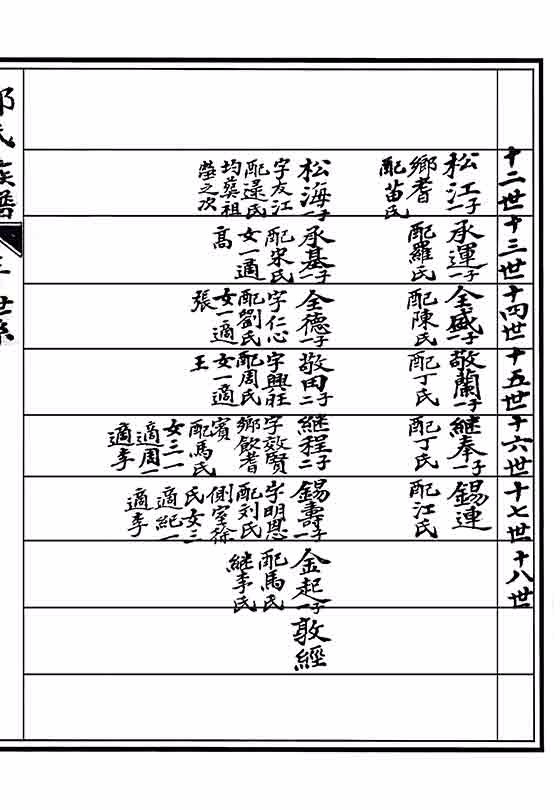 十二世
松江一子
鄉耆
配苗氏
松海一子
字友江
配逯氏
均葬祖
塋之次
十三世
承運一子
配羅氏
承基一子
配宋氏
女一適
高
十四世
全盛一子
配陳氏
全德一子
字仁心
配劉氏
女一適
張
十五世
敬蘭一子
配丁氏
敬田二子
字興旺
配周氏
女一適
王
十六世
継奉一子
配丁氏
継程二子
字效賢
鄉飲耆
賓
配馬氏
女三一
適周一
適李
十七世
錫連
配江氏
錫壽一子
字明恩
配刘氏
側室徐
氏女三
適紀一
適李
十八世
金起一子
配馬氏
継李氏
敦經
氏族譜
世系